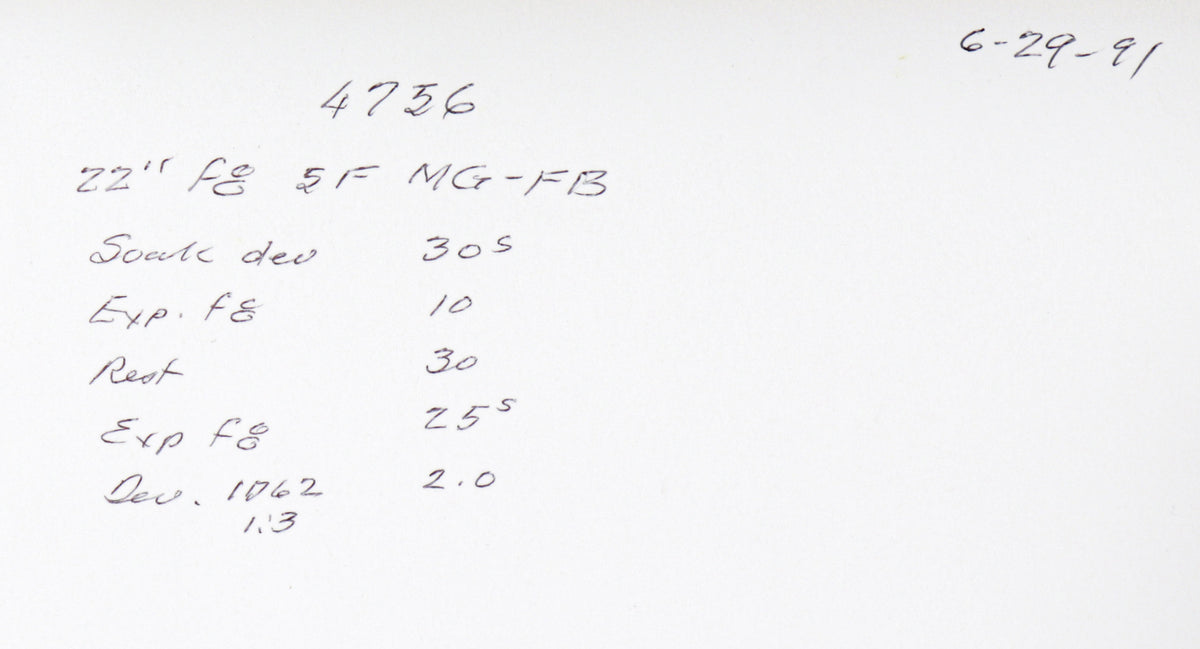 6-29-91
4756
22" f8 5F MG-FB
Soak dev 30s
Exp. f8 10
Rest 30
Exp f8 25s
Dev. ID62 2.0
1:3